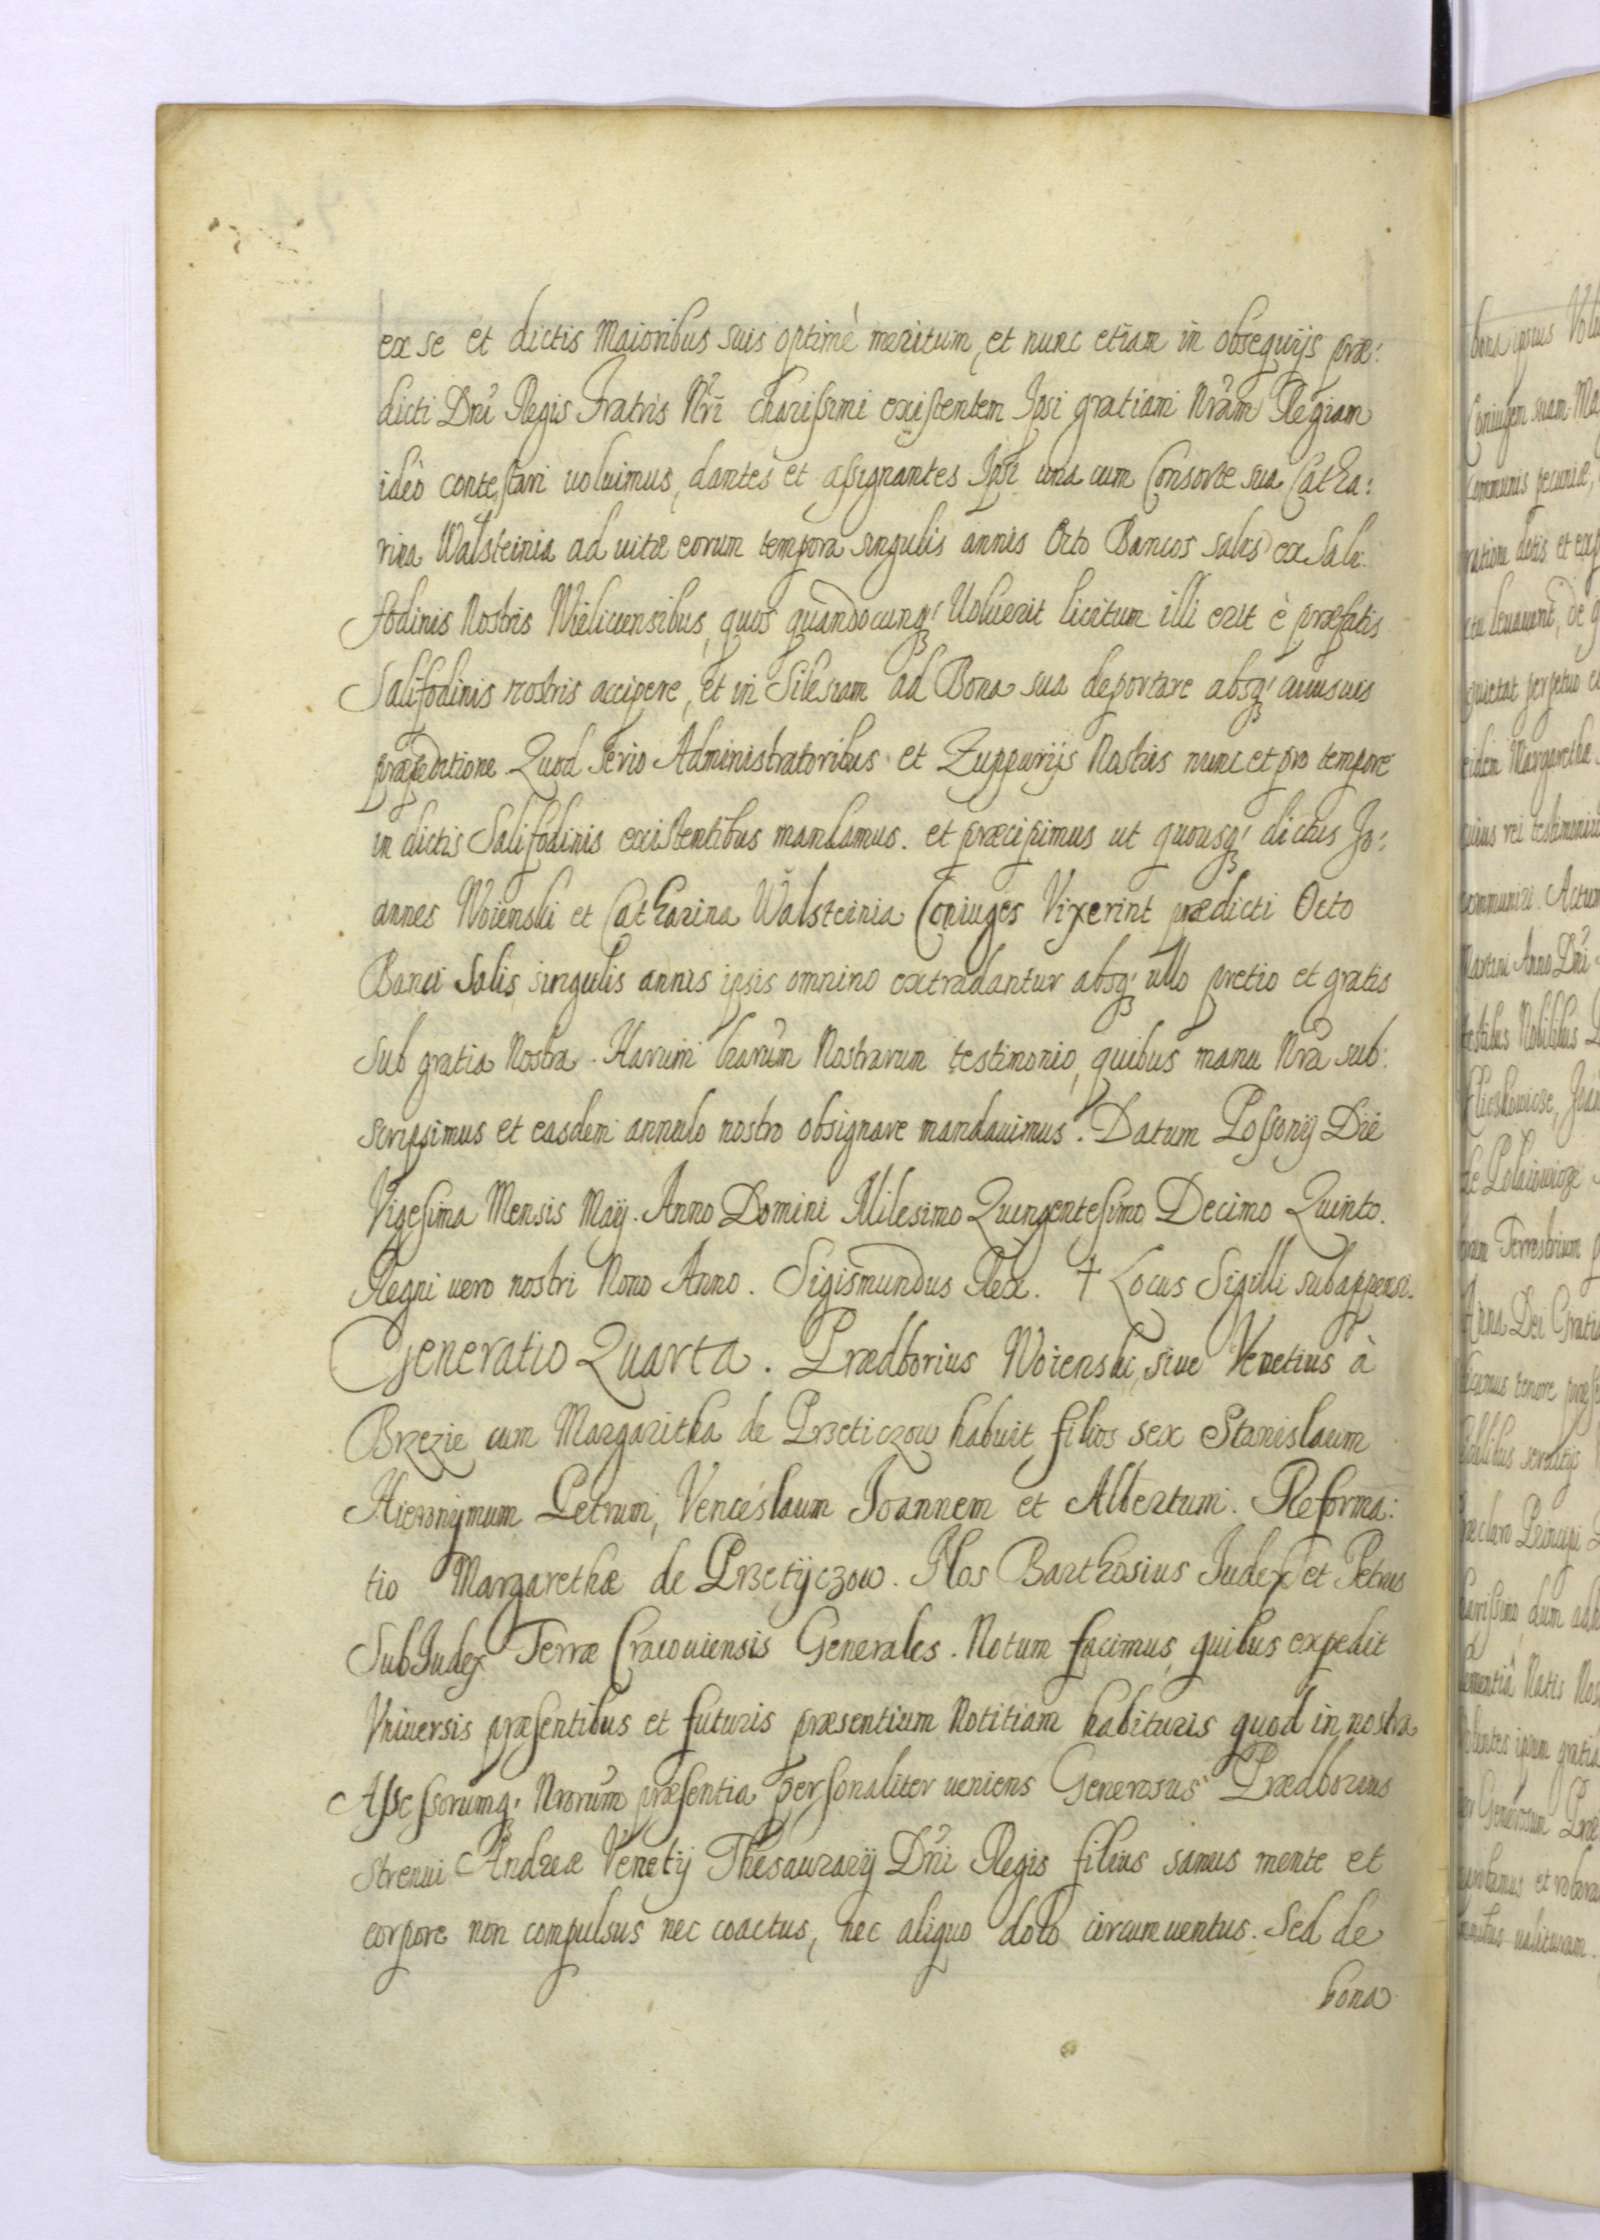 ex se et dictis Maioribus suis optimè meritum, et nunc etiam in obsequijs præ:
dicti Dni Regis Fratris Nri charissimi existentem Ipsi gratiam Nram Regiam
ideò contestari uoluimus, dantes et assignantes Ipsi una cum Consorte sua Catha:
rina Walsteinia ad uitæ eorum tempora singulis annis Octo Bancos salis ex Sali:
fodinis Nostris Wieliciensibus, quos quandocunq; Uoluerit licitum illi erit è præfatis
Salifodinis nostris accipere, et in Silesiam ad Bona sua deportare absq; cuiusuis
præpeditione Quod serio Administratoribus et Zupparijs Nostris nunc et pro tempore
in dictis Salifodinis existentibus mandamus. et præcipimus ut quousq; dictus Jo:
annes Woienski et Catharina Walsteinia Coniuges Vixerint prædicti Octo
Banci Salis singulis annis ipsis omnino extradantur absq; ullo pretio et gratis
sub gratia Nostra. Harum lrarum Nostrarum testimonio, quibus manu Nra sub:
scripsimus et easdem annulo nostro obsignare mandauimus. Datum Possonij Die
Vigesima Mensis Maÿ. Anno Domini Milesimo Quingentesimo Decimo Quinto.
Regni uero nostri Nono Anno. Sigismundus Rex. † Locus Sigilli subappensi.
Generatio Quarta. Prædborius Woienski, siue Venetius à
Brezie cum Margaritha de Przeticzow habuit filios sex Stanislaum
Hieronÿmum Petrum, Venceslaum Joannem et Albertum. Reforma:
tio Margarethæ de Przetÿczow. Nos Barthosius Judex et Petrus
SubJudex Terræ Cracouiensis Generales. Notum facimus, quibus expedit
Vniuersis præsentibus et futuris præsentium Notitiam habituris quod in nostra
Assessorumq; Nrorum præsentia personaliter ueniens Generosus Prædborius
strenui Andreæ Venetij Thesaurarij Dni Regis filius sanus mente et
corpore non compulsus nec coactus, nec aliquo dolo circumuentus. Sed de
bona